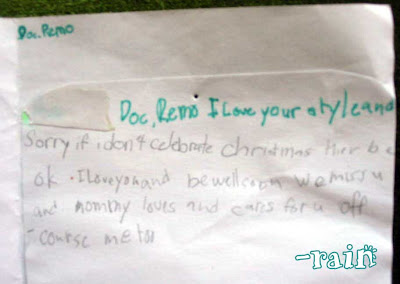 Doc. Remo
Doc, Remo I Love your style and
Sorry if i don't celebrate christmas hier be
ok. I love you and be well soon we miss u
and mommy loves and cares for u off
course me too
-rain